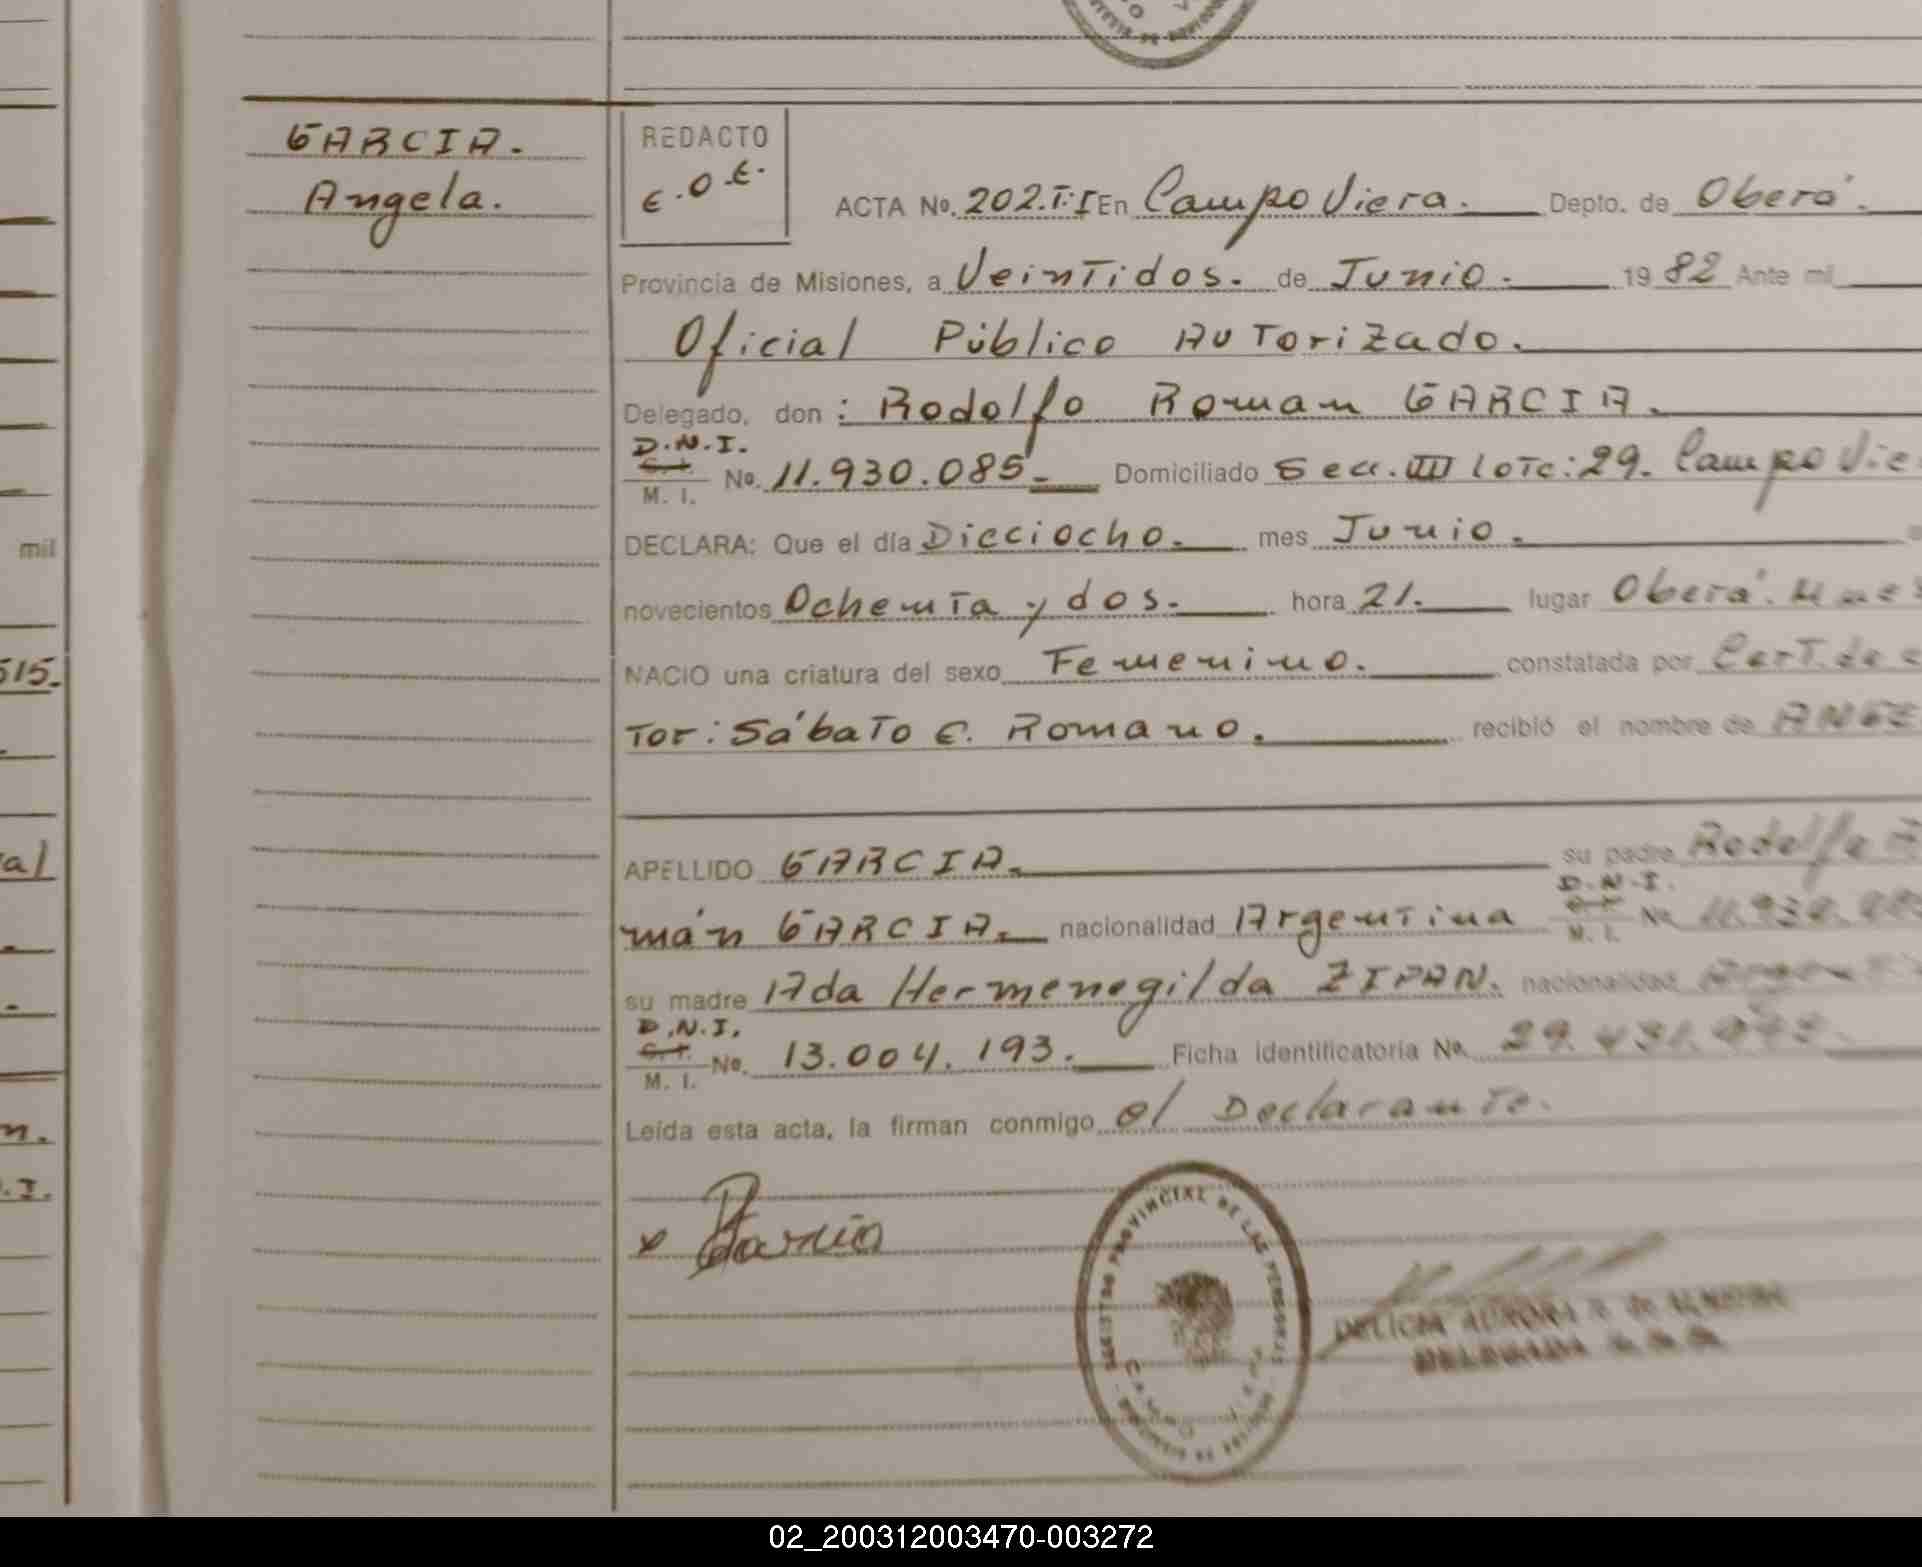 GARCIA.
Angela.
REDACTO
E.O.E.
ACTA No. 202.T:I En Campo Viera. Depto. de Oberá.
Provincia de Misiones, a VeinTidos. de Junio. 1982 Ante mi
Oficial Público AuTorizado.
Delegado, don : Rodolfo Roman GARCIA.
D.N.I.
C. I.
M. I.
No. 11.930.085 Domiciliado Secc. III loTe: 29. Campo Vie
DECLARA: Que el día Dieciocho. mes Junio.
novecientos OchenTa y dos. hora 21. lugar Oberá. Mnes
NACIO una criatura del sexo Femenino. constatada por CerT. de
Tor: SábaTo E. Romano. recibió el nombre de ANGE
APELLIDO GARCIA. su padre Rodolfo R
D.N.I.
mán GARCIA. nacionalidad ArgenTina M. I. No 11.930.085
su madre Ada Hermenegilda ZIPAN. nacionalidad ArgenTi
D.N.I.
C. I.
M. I.
No. 13.004.193. Ficha identificatoria No. 29.431.
Leída esta acta, la firman conmigo el DeclaranTe.
x García
REGISTRO PROVINCIAL DE LAS PERSONAS
CAMPO VIERA
DELICIA AURORA de
DELEGADA
mil
515.
al
n.
.I.
02_200312003470-003272